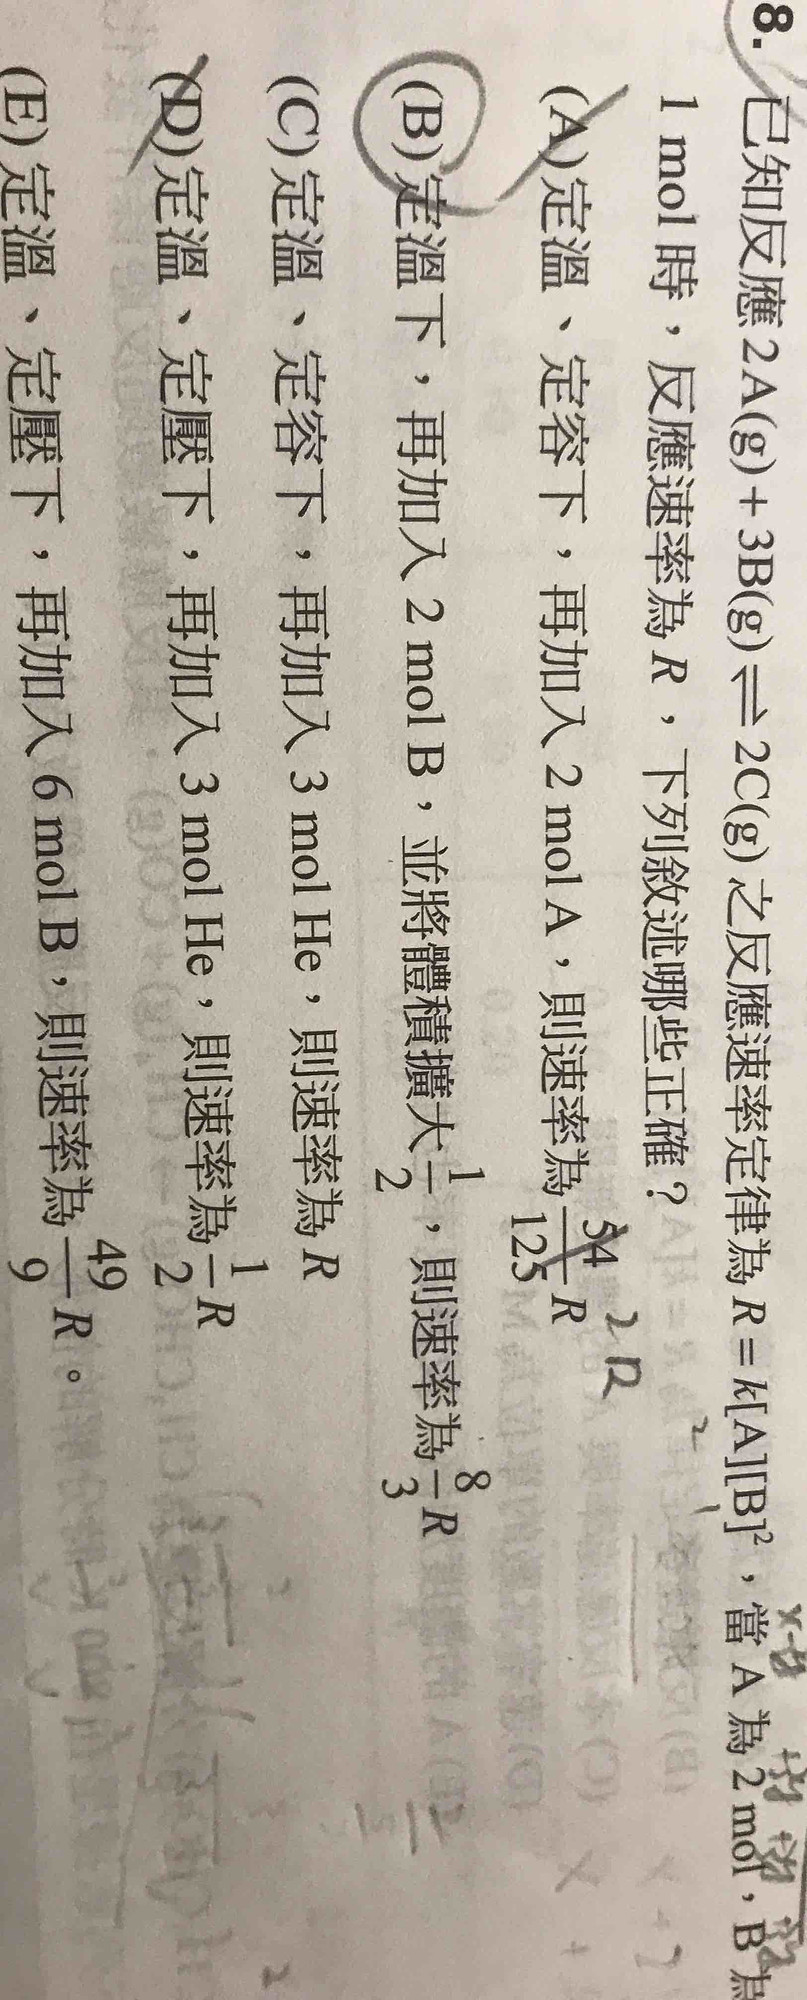 8. 已知反應2A(g)+3B(g)⇌2C(g)之反應速率定律為R=k[A][B]²，當A為2 mol，B為
1 mol時，反應速率為R，下列敘述哪些正確？
(A)定溫、定容下，再加入2 mol A，則速率為54/125 R 2R
(B)定溫下，再加入2 mol B，並將體積擴大1/2，則速率為8/3 R
(C)定溫、定容下，再加入3 mol He，則速率為R
(D)定溫、定壓下，再加入3 mol He，則速率為1/2 R
(E)定溫、定壓下，再加入6 mol B，則速率為49/9 R。